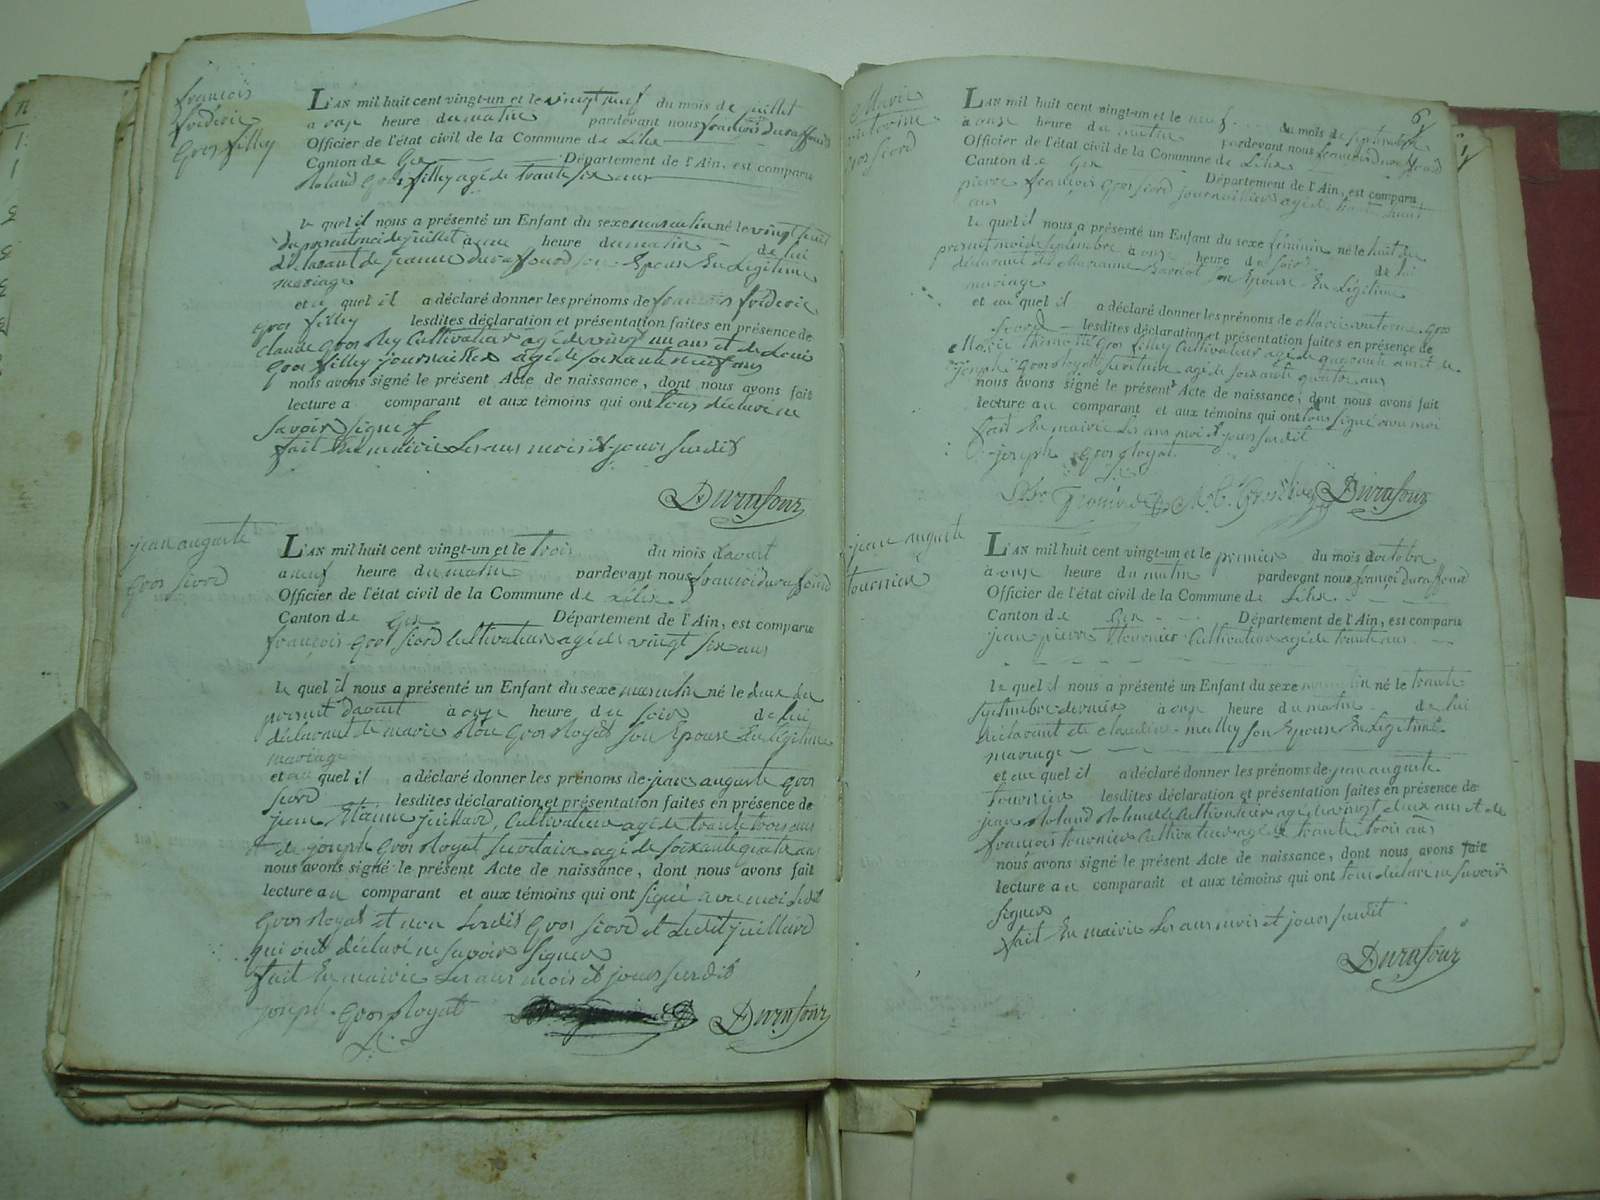 françois
frédéric
Gros filley
L'AN mil huit cent vingt-un et le vingt neuf du mois de juillet
a onze heure du matin pardevant nous françois duraffourd
Officier de l'état civil de la Commune de Lélex
Canton de Gex Département de l'Ain, est comparu
Roland Gros filley agé de trante six ans
le quel il nous a présenté un Enfant du sexe masculin né le vingt huit
du présent moi de juillet a une heure du matin de lui
déclarant de jeanne duraffourd son Epouse En Légitime
mariage
et au quel il a déclaré donner les prénoms de françois fréderic
Gros filley lesdites déclaration et présentation faites en présence de
claude Gros Cultivateur agé de vingt un ans et de Louis
Gros filley journallier agé de soixante neuf ans
nous avons signé le présent Acte de naissance, dont nous avons fait
lecture au comparant et aux témoins qui ont tous déclaré ne
savoir signer
fait En mairie Les ans mois et jours susdit
Durafour
jean auguste
Gros fiord
L'AN mil huit cent vingt-un et le trois du mois d'aout
a neuf heure du matin pardevant nous françoi duraffourd
Officier de l'état civil de la Commune de Lélex
Canton de Gex Département de l'Ain, est comparu
françois Gros fiord Cultivateur agé de vingt six ans
le quel il nous a présenté un Enfant du sexe masculin né le deux du
présent d'aout à onze heure du soir de lui
déclarant de marie Gros Royat son Epouse En Légitime
mariage
et au quel il a déclaré donner les prénoms de jean auguste Gros
fiord lesdites déclaration et présentation faites en présence de
jean Etienne juillard, Cultivateur agé de trante trois ans
de joseph Gros Royat Secrétaire agé de soixante quatre ans
nous avons signé le présent Acte de naissance, dont nous avons fait
lecture au comparant et aux témoins qui ont signé avec moi Ledit
Gros Royat et non Lesdits Gros fiord et Ledit juillard
qui ont déclaré ne savoir signer
fait En mairie Les ans mois et jours susdit
joseph Gros Royat Durafour
Marie
antoinne
Gros fiord
L'AN mil huit cent vingt-un et le neuf du mois de septembre
à onze heure du matin pardevant nous françois duraffourd
Officier de l'état civil de la Commune de Lélex
Canton de Gex Département de l'Ain, est comparu
pierre françois Gros fiord journallier agé de trante huit
ans
le quel il nous a présenté un Enfant du sexe féminin né le huit du
présent moi de septembre à onze heure du soir de lui
déclarant de Marianne son Epouse En Légitime
mariage
et au quel il a déclaré donner les prénoms de Marie antoinne Gros
fiord lesdites déclaration et présentation faites en présence de
Marie Gros filley Cultivateur agé de quarante
joseph Gros Royat Secrétaire agé de soixante quatre ans
nous avons signé le présent Acte de naissance, dont nous avons fait
lecture au comparant et aux témoins qui ont tous signé avec moi
fait En mairie Les ans moi et jours susdit
joseph Gros Royat
Durafour
jean auguste
tournier
L'AN mil huit cent vingt-un et le premier du mois doctobre
à onze heure du matin pardevant nous françoi duraffourd
Officier de l'état civil de la Commune de Lélex
Canton de Gex Département de l'Ain, est comparu
jean pierre tournier Cultivateur agé de trante ans
le quel il nous a présenté un Enfant du sexe masculin né le trante
septembre dernier à onze heure du matin de lui
déclarant de claudine mathey son Epouse En Légitime
mariage
et au quel il a déclaré donner les prénoms de jean auguste
tournier lesdites déclaration et présentation faites en présence de
jean Roland Cultivateur agé de vingt deux ans et de
françois tournier Cultivateur agé de trante trois ans
nous avons signé le présent Acte de naissance, dont nous avons fait
lecture au comparant et aux témoins qui ont tous déclaré ne savoir
signer
fait En mairie Les ans mois et jours susdit
Durafour